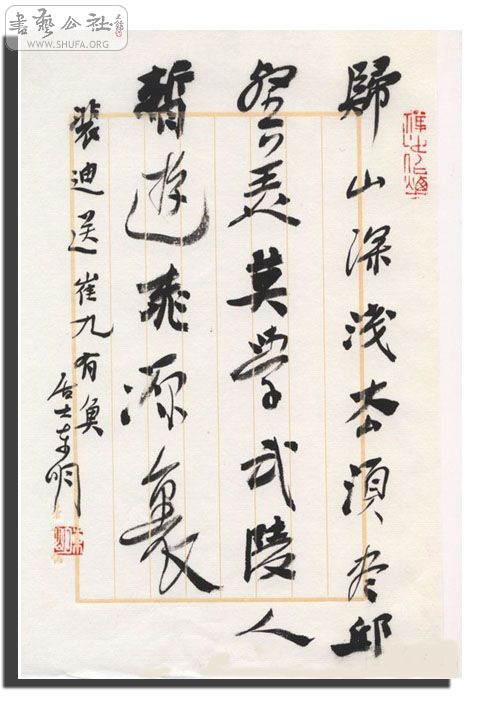 書藝公社
WWW.SHUFA.ORG
歸山深淺去須盡邱
壑美莫學武陵人
暫遊桃源裏
裴迪送崔九 有奐
居士東明